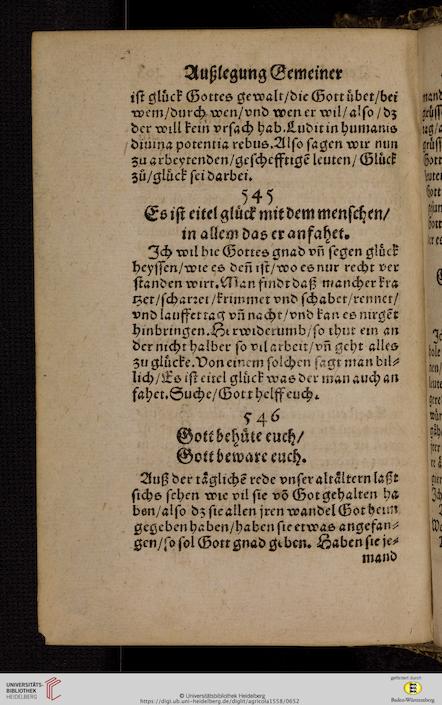 Außlegung Gemeiner
ist glück Gottes gewalt/die Gott übet/bei
wem/durch wen/vnd wen er wil/also/dz
der will kein vrsach hab. Ludit in humanis
diuina potentia rebus. Also sagen wir nun
zu arbeytenden/geschefftigē leuten/ Glück
zů/glück sei darbei.
545
Es ist eitel glück mit dem menschen/
in allem das er anfahet.
Ich wil hie Gottes gnad vñ segen glück
heyssen/wie es deñ ist/wo es nur recht ver
standen wirt. Man findt daß mancher kra
tzet/scharret/krimmet vnd schabet/rennet/
vnd lauffet tag vñ nacht/vnd kan es nirgēt
hinbringen. Herwiderumb/so thut ein an
der nicht halber so vil arbeit/vñ geht alles
zu glücke. Von einem solchen sagt man bil⸗
lich/Es ist eitel glück was der man auch an
fahet. Suche/Gott helff euch.
546
Gott behüte euch/
Gott beware euch.
Auß der täglichē rede vnser altältern laßt
sichs sehen wie vil sie vō Got gehalten ha
ben/also dz sie allen jren wandel Got heim
gegeben haben/haben sie etwas angefan⸗
gen/so sol Gott gnad geben. Haben sie je⸗
mand
UNIVERSITÄTS-
BIBLIOTHEK
HEIDELBERG
© Universitätsbibliothek Heidelberg
https://digi.ub.uni-heidelberg.de/diglit/agricola1558/0652
gefördert durch
Baden-Württemberg